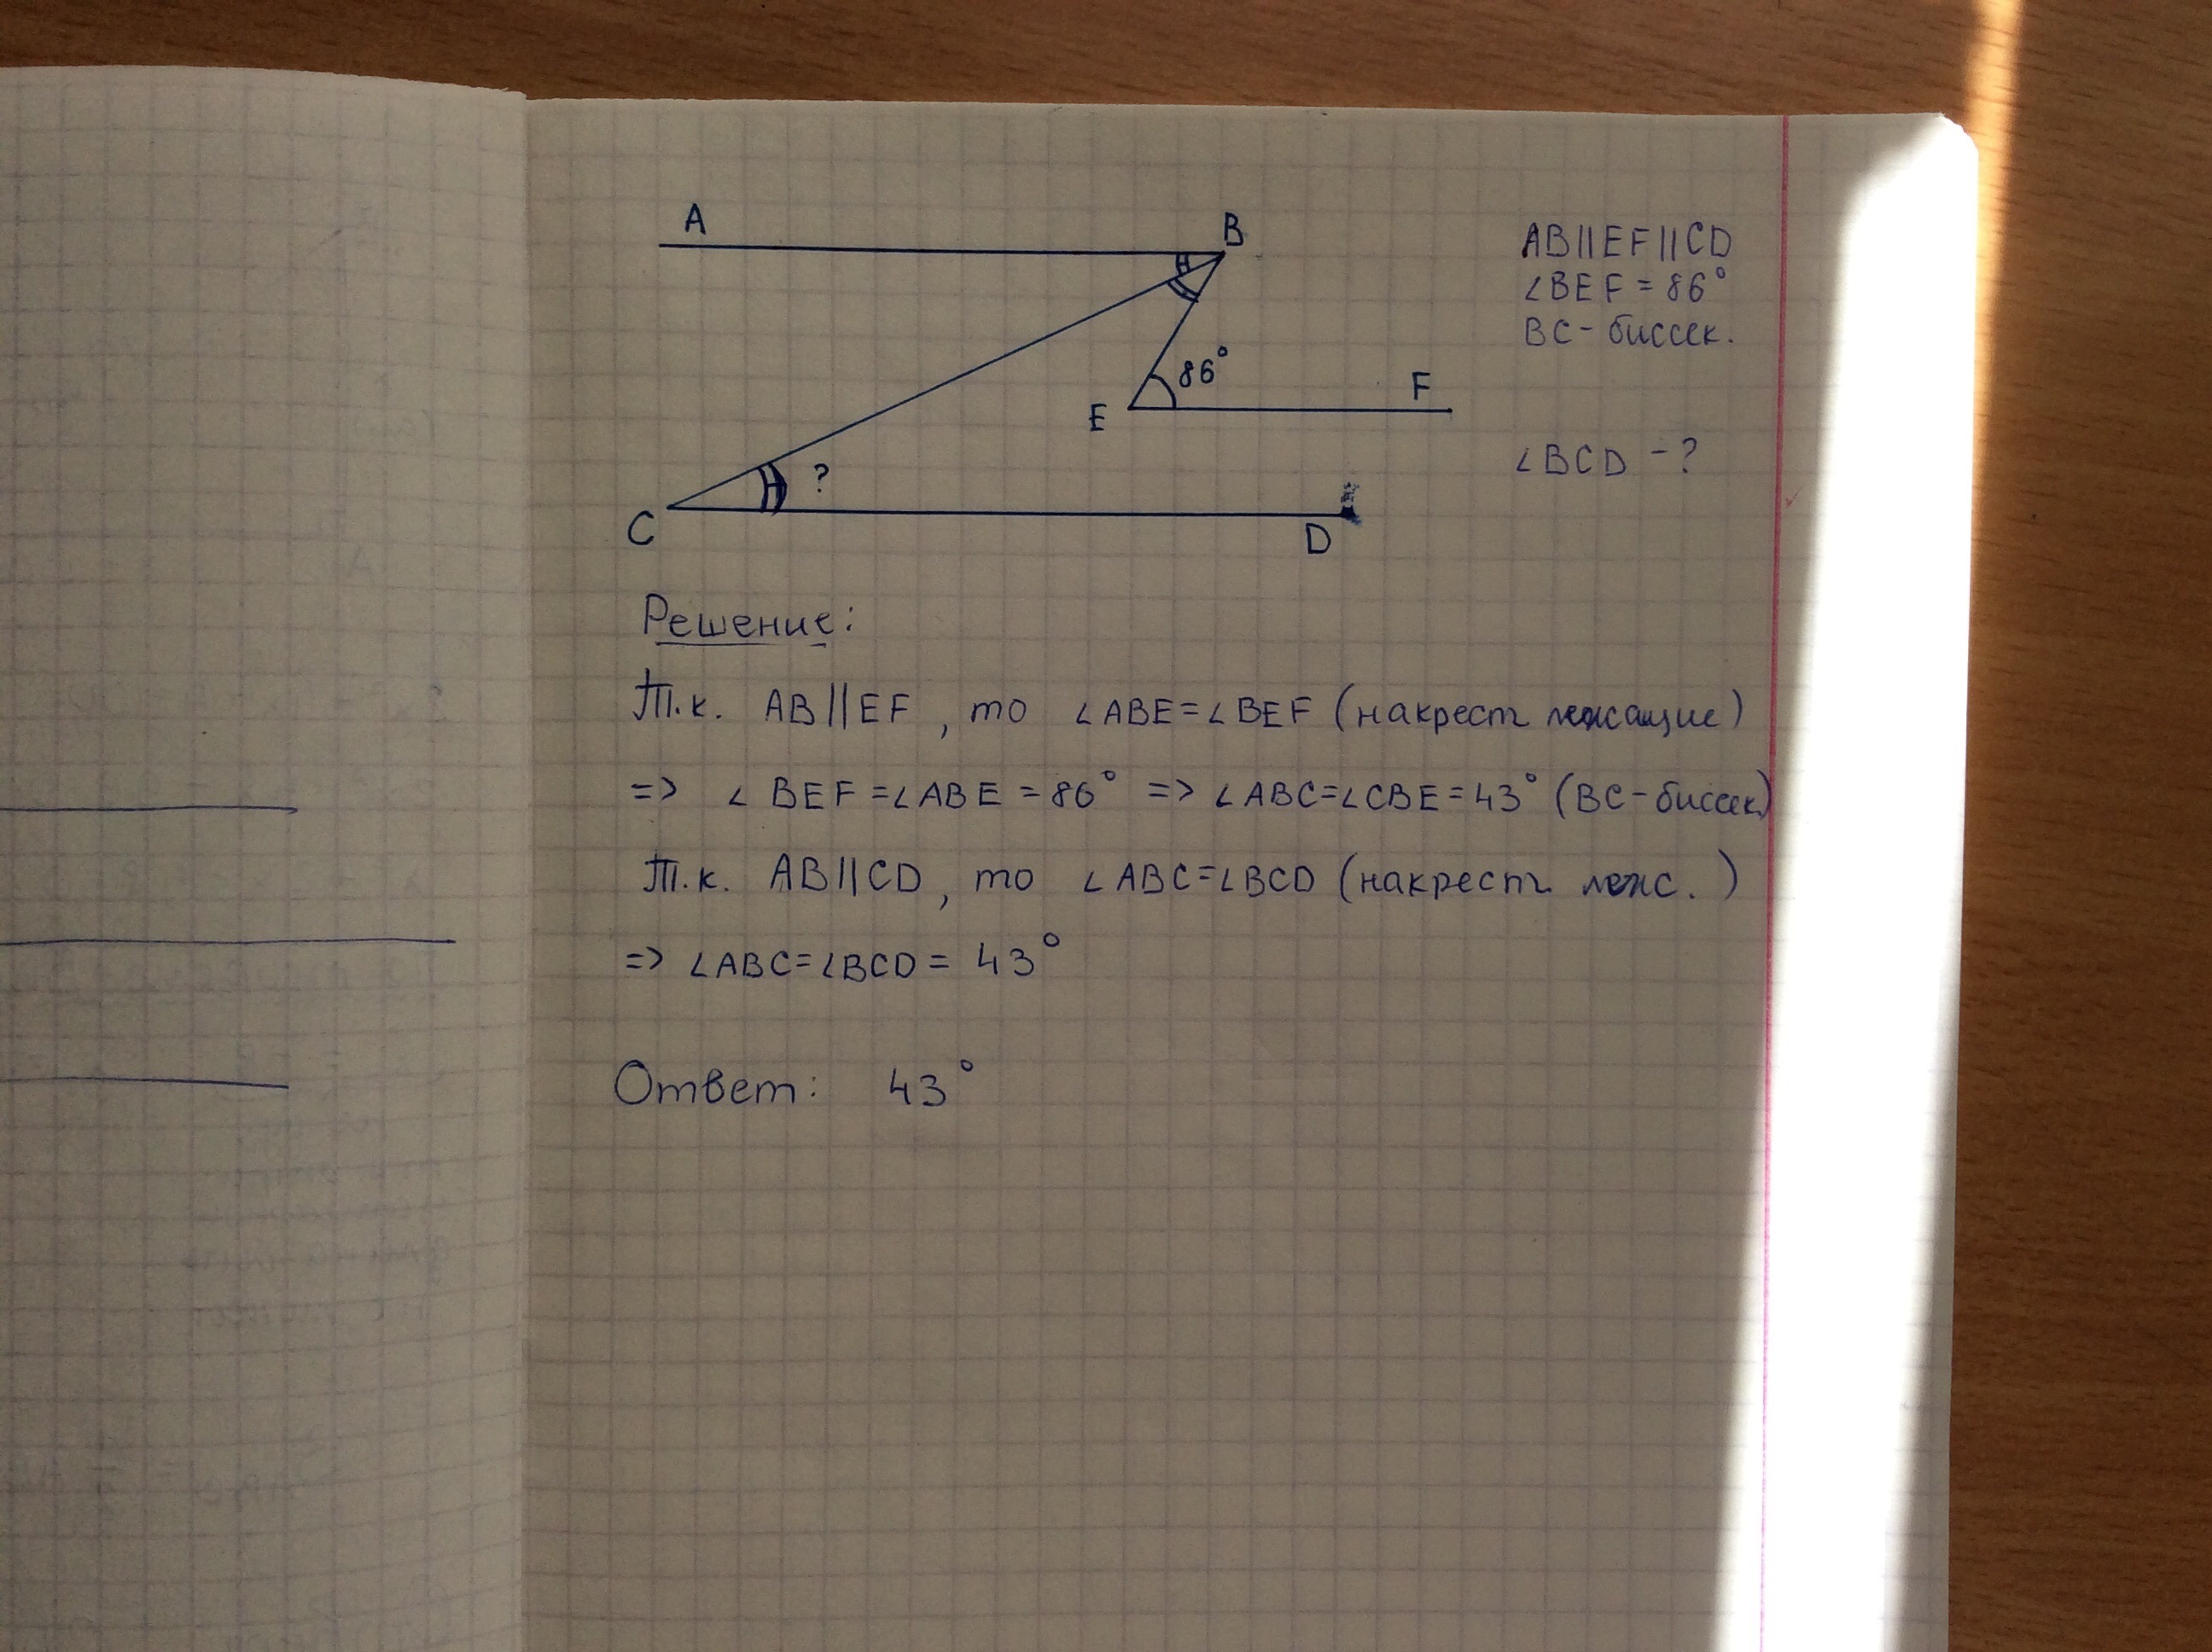 A
B
AB||EF||CD
∠BEF=86°
BC-биссек.
86°
F
E
∠BCD -?
?
C
D
Решение:
Т.к. AB||EF, то ∠ABE=∠BEF (накрест лежащие)
=> ∠BEF=∠ABE=86° => ∠ABC=∠CBE=43° (BC-биссек)
Т.к. AB||CD, то ∠ABC=∠BCD (накрест леж.)
=> ∠ABC=∠BCD= 43°
Ответ: 43°